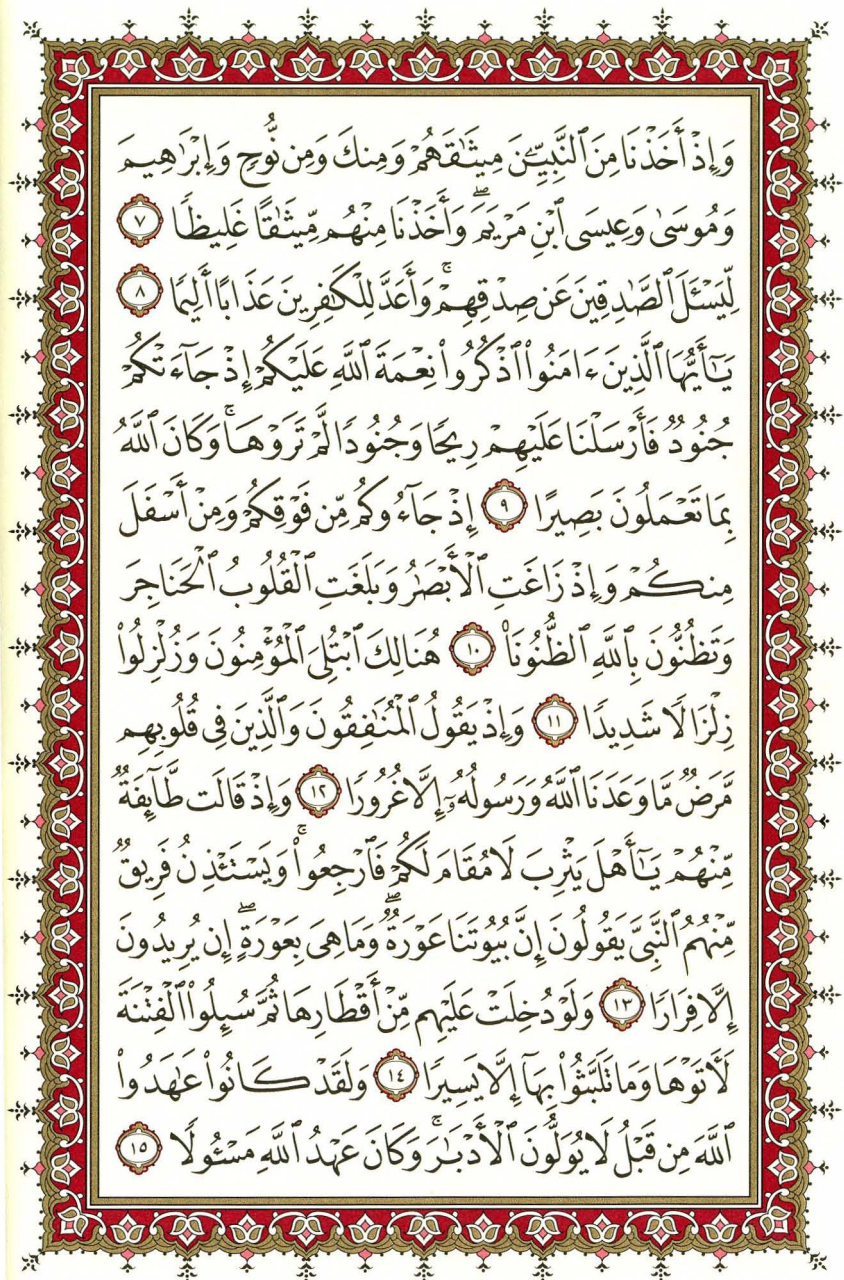 وَإِذْ أَخَذْنَا مِنَ ٱلنَّبِيِّـۧنَ مِيثَٰقَهُمْ وَمِنكَ وَمِن نُّوحٍ وَإِبْرَٰهِيمَ
وَمُوسَىٰ وَعِيسَى ٱبْنِ مَرْيَمَ ۖ وَأَخَذْنَا مِنْهُم مِّيثَٰقًا غَلِيظًا ٧
لِّيَسْـَٔلَ ٱلصَّٰدِقِينَ عَن صِدْقِهِمْ ۚ وَأَعَدَّ لِلْكَٰفِرِينَ عَذَابًا أَلِيمًا ٨
يَٰٓأَيُّهَا ٱلَّذِينَ ءَامَنُوا۟ ٱذْكُرُوا۟ نِعْمَةَ ٱللَّهِ عَلَيْكُمْ إِذْ جَآءَتْكُمْ
جُنُودٌ فَأَرْسَلْنَا عَلَيْهِمْ رِيحًا وَجُنُودًا لَّمْ تَرَوْهَا ۚ وَكَانَ ٱللَّهُ
بِمَا تَعْمَلُونَ بَصِيرًا ٩ إِذْ جَآءُوكُم مِّن فَوْقِكُمْ وَمِنْ أَسْفَلَ
مِنكُمْ وَإِذْ زَاغَتِ ٱلْأَبْصَٰرُ وَبَلَغَتِ ٱلْقُلُوبُ ٱلْحَنَاجِرَ
وَتَظُنُّونَ بِٱللَّهِ ٱلظُّنُونَا۠ ١٠ هُنَالِكَ ٱبْتُلِىَ ٱلْمُؤْمِنُونَ وَزُلْزِلُوا۟
زِلْزَالًا شَدِيدًا ١١ وَإِذْ يَقُولُ ٱلْمُنَٰفِقُونَ وَٱلَّذِينَ فِى قُلُوبِهِم
مَّرَضٌ مَّا وَعَدَنَا ٱللَّهُ وَرَسُولُهُۥٓ إِلَّا غُرُورًا ١٢ وَإِذْ قَالَت طَّآئِفَةٌ
مِّنْهُمْ يَٰٓأَهْلَ يَثْرِبَ لَا مُقَامَ لَكُمْ فَٱرْجِعُوا۟ ۚ وَيَسْتَـْٔذِنُ فَرِيقٌ
مِّنْهُمُ ٱلنَّبِىَّ يَقُولُونَ إِنَّ بُيُوتَنَا عَوْرَةٌ ۖ وَمَا هِىَ بِعَوْرَةٍ ۖ إِن يُرِيدُونَ
إِلَّا فِرَارًا ١٣ وَلَوْ دُخِلَتْ عَلَيْهِم مِّنْ أَقْطَارِهَا ثُمَّ سُئِلُوا۟ ٱلْفِتْنَةَ
لَـَٔاتَوْهَا وَمَا تَلَبَّثُوا۟ بِهَآ إِلَّا يَسِيرًا ١٤ وَلَقَدْ كَانُوا۟ عَٰهَدُوا۟
ٱللَّهَ مِن قَبْلُ لَا يُوَلُّونَ ٱلْأَدْبَٰرَ ۚ وَكَانَ عَهْدُ ٱللَّهِ مَسْـُٔولًا ١٥